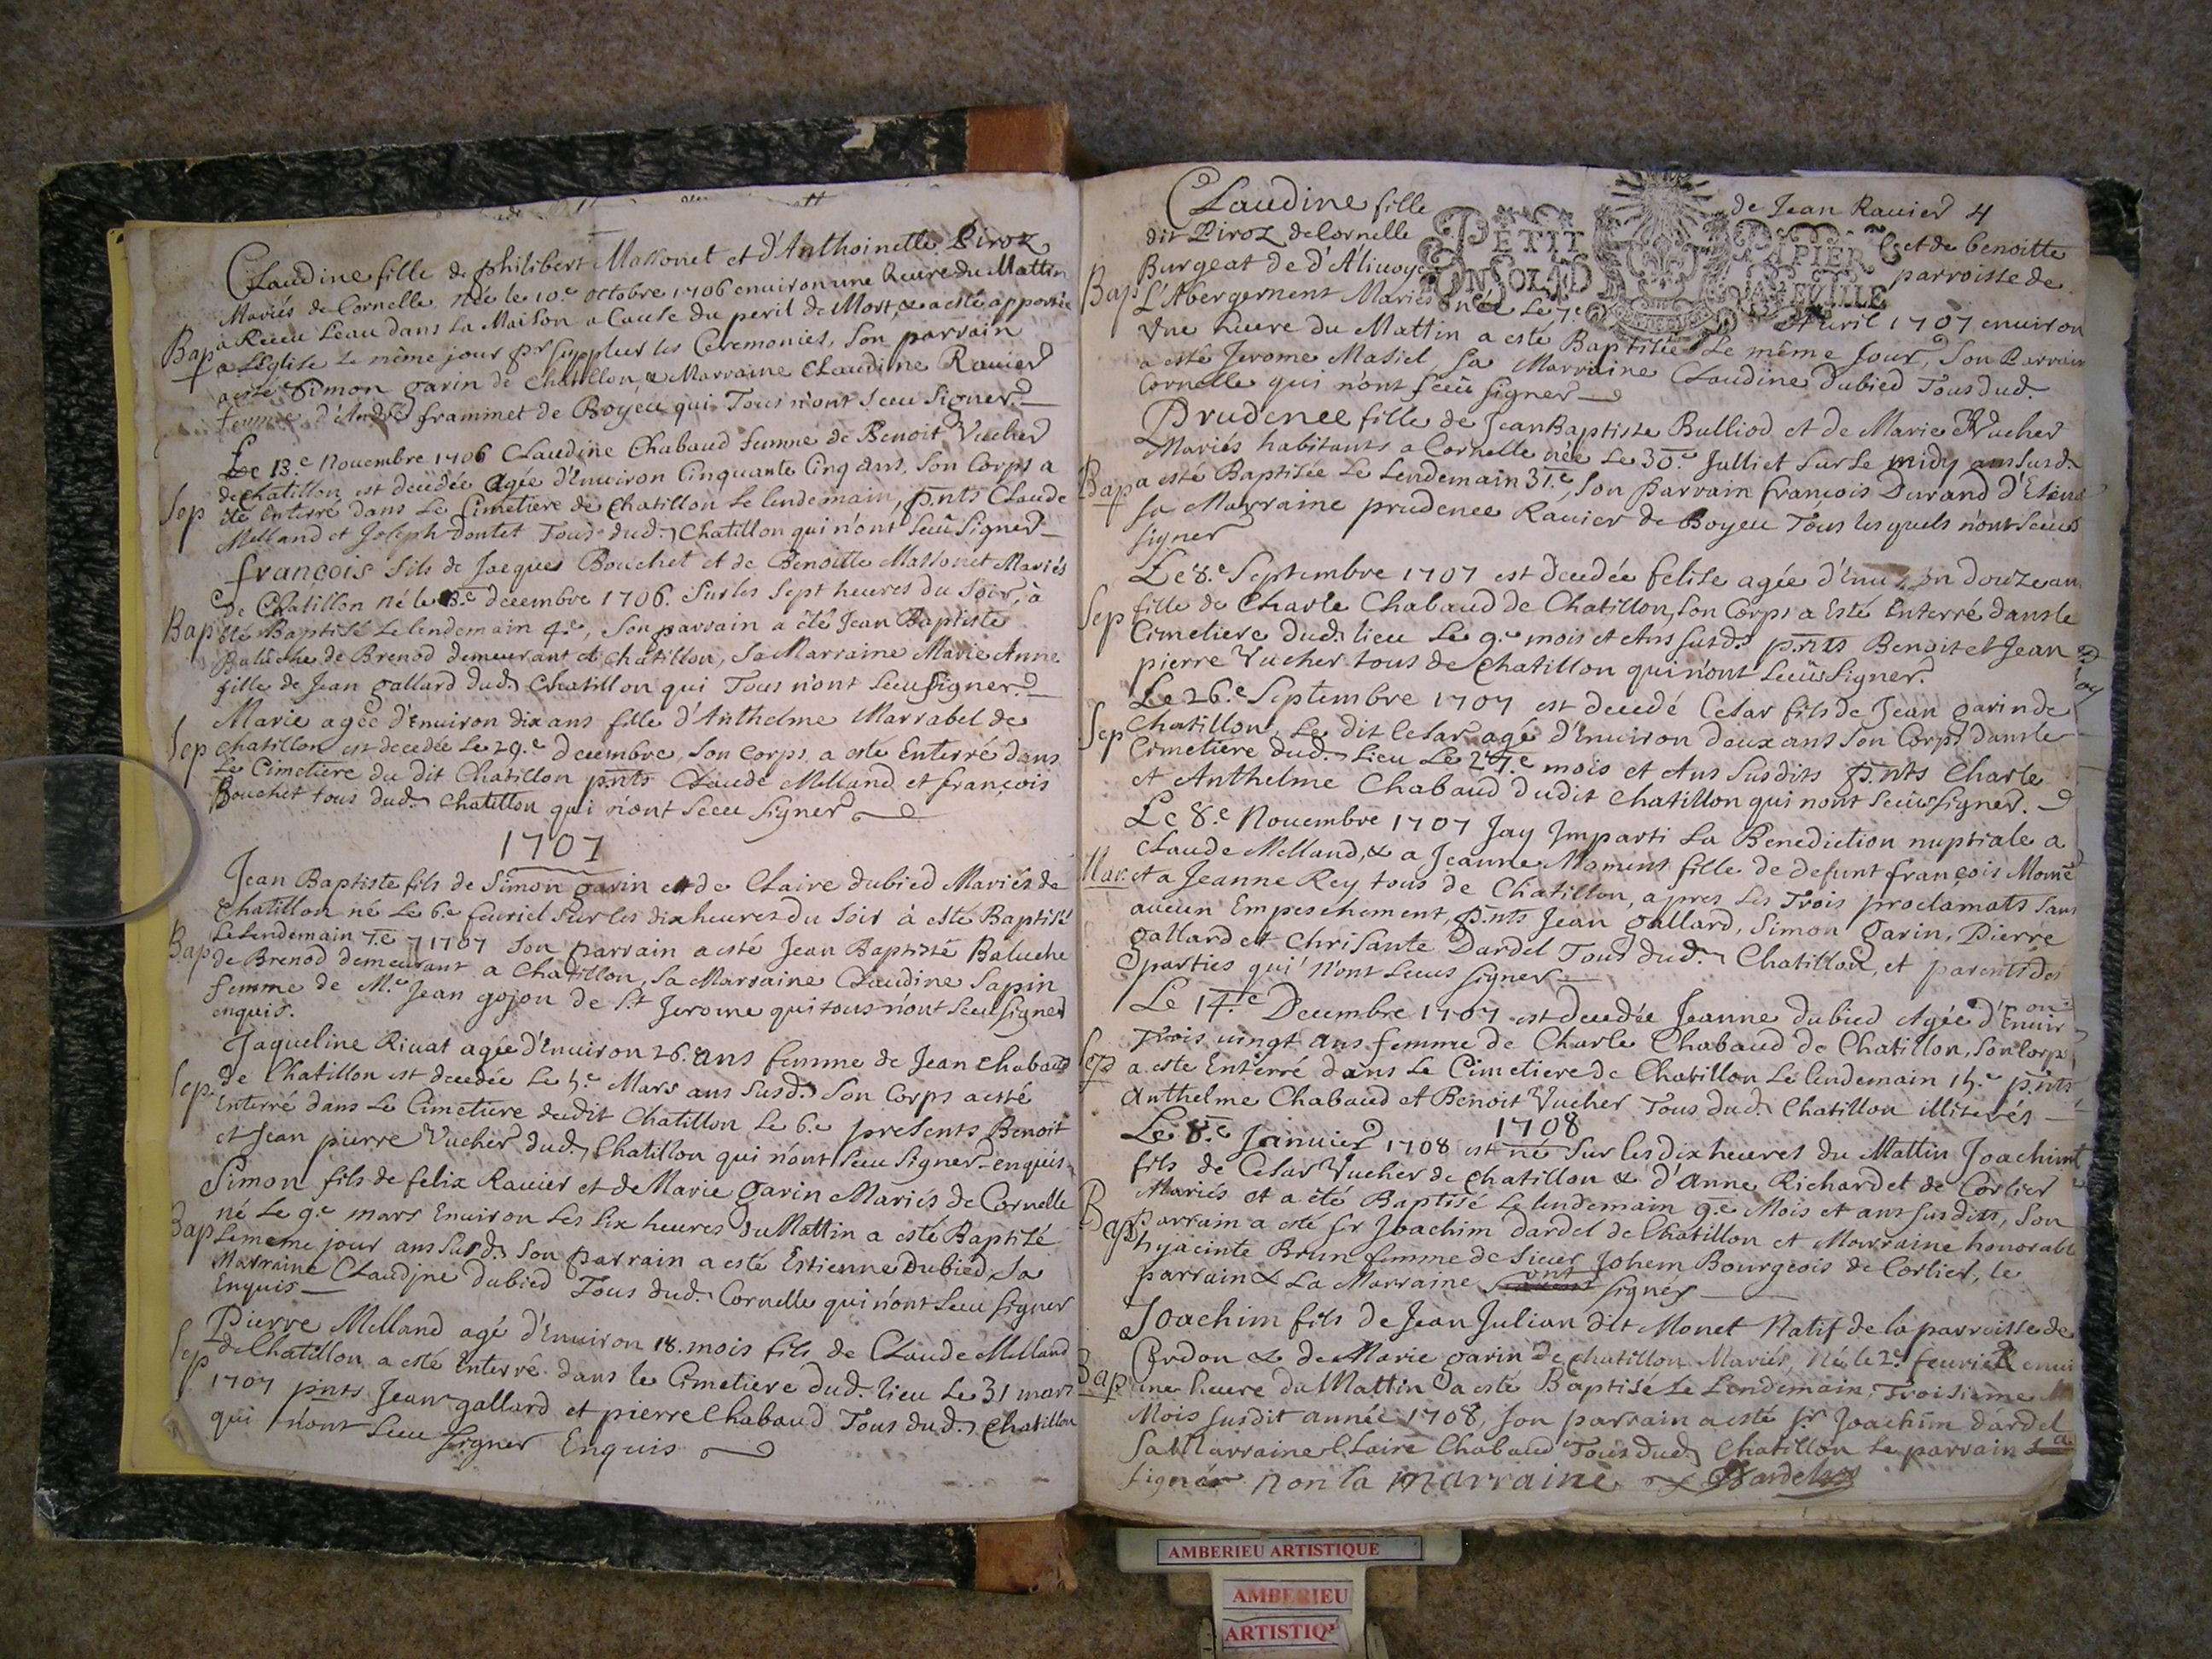 Claudine fille de philibert Massonet et d'Anthoinette Piroz
Mariés de Cornelle née le 10.e octobre 1706 enuiron une heure du Mattin
Bap a Receu Leau dans La Maison a Cause du peril de Mort, & a esté apportée
a LEglise Le même jour pr supplier les Ceremonies, Son parrain
a esté Simon garin de Chatillon, & Marraine Claudine Rauier
femme d'André frammet de Boyeu qui Tous n'ont sceu Signer.
Le 13.e Nouembre 1706 Claudine Chabaud femme de Benoit Vucher
de chatillon est decedée Agée d'Enuiron Cinquante Cinq Ans, Son Corps a
Sep été Enterré dans Le Cimetiere de Chatillon Le lendemain, p.nts Claude
Melland et Joseph Doutet Tous dud. Chatillon qui n'ont sceu Signer
françois fils de Jacques Bouchet et de Benoitte Massonet Mariés
de Chatillon né le 3.e decembre 1706. Sur les Sept heures du Soir, à
Bap été Baptisé Le lendemain 4.e, Son parrain a été Jean Baptiste
Baluche de Brenod demeurant a Chatillon, Sa Marraine Marie Anne
fille de Jean gallard dud. Chatillon qui Tous n'ont sceu Signer.
Marie agée d'Enuiron dix ans fille d'Anthelme Marrabel de
Sep Chatillon est decedée Le 29.e decembre, Son Corps a esté Enterré dans
Le Cimetiere du dit Chatillon p.nts Claude Melland et françois
Bouchet tous dud. Chatillon qui n'ont Sceu Signer
1707
Jean Baptiste fils de Simon garin et de Claire dubied Mariés de
Chatillon né Le 6.e feurier Sur les dix heures du Soir à esté Baptisé
Le Lendemain 7.e 1707 Son parrain a esté Jean Baptiste Baluche
Bap de Brenod demeurant a Chatillon, Sa Marraine Claudine Sapin
femme de M.e Jean gojon de S.t Jerome qui tous n'ont sceu Signer
enquis.
Jaqueline Riuat agée d'Enuiron 26. ans femme de Jean Chabaud
Sep de Chatillon est decedée Le 5.e Mars ans Susd. Son Corps a esté
Enterré dans Le Cimetiere dudit Chatillon Le 6.e presents Benoit
et Jean pierre Vucher dud. Chatillon qui n'ont sceu Signer enquis
Simon fils de felix Rauier et de Marie garin Mariés de Cornelle
né Le 9.e mars Enuiron Les Six heures du Mattin a esté Baptisé
Bap Le meme jour ans Susd. Son parrain a esté Estienne Dubied, Sa
Marraine Claudine dubied Tous dud. Cornelle qui n'ont Sceu Signer
Enquis
Pierre Melland agé d'Enuiron 18. mois fils de Claude Melland
Sep de Chatillon a esté Enterré dans le Cimetiere dud. lieu Le 31 mars
1707 p.nts Jean gallard et pierre Chabaud Tous dud. Chatillon
qui n'ont Sceu Signer Enquis
Claudine fille de Jean Rauier 4
dit Piroz de Cornelle et de benoitte
PETIT PAPIER
Burgeat de d'Aliuoye parroisse de
Bap L'Abergement Mariés née Le 7.e Auril 1707 enuiron
Vne heure du Mattin a esté Baptisée Le même Jour, Son Parrain
a esté Jerome Masiet Sa Marraine Claudine dubied Tous dud.
Cornelle qui n'ont sceü Signer
Prudence fille de Jean Baptiste Bulliod et de Marie Vucher
Mariés habitants a Cornelle née Le 30.e Julliet Sur Le midy ans Susd.
Bap a esté Baptisée Le Lendemain 31.e, Son Parrain françois Durand
Sa Marraine prudence Rauier de Boyeu Tous lesquels n'ont sceu
Signer
Le 8.e Septembre 1707 est decedée felise agée d'Enuiron douze an
Sep fille de Charle Chabaud de Chatillon, Son Corps a Esté Enterré dans le
Cimetiere dud. lieu Le 9.e mois et Ans Susd. p.nts Benoit et Jean
pierre Vucher tous de Chatillon qui n'ont sceü Signer.
Le 26.e Septembre 1707 est decedé Cesar fils de Jean garin de
Sep Chatillon, Le dit Cesar agé d'Enuiron deux ans Son Corps dans Le
Cimetiere dud. Lieu Le 27.e mois et Ans Susdits p.nts Charle
et Anthelme Chabaud dudit Chatillon qui nont Sceü Signer.
Le 8.e Nouembre 1707 Jay Imparti La Benediction nuptiale a
Claude Melland, & a Jeanne Moment fille de defunt françois
Mar. et a Jeanne Rey tous de Chatillon, apres Les Trois proclamats Sans
aucun Empeschement, p.nts Jean gallard, Simon Garin, Pierre
gallard et Chrisante Dardel Tous dud. Chatillon, et parents des
parties qui n'ont sceus Signer
Le 14.e Decembre 1707 est decedée Jeanne dubied Agée d'Enuiron
Trois uingt Ans femme de Charle Chabaud de Chatillon, Son Corps
Sep a este Enterré dans Le Cimetiere de Chatillon Le lendemain 15.e p.nts
Anthelme Chabaud et Benoit Vucher Tous dud. Chatillon illiterés
1708
Le 8.e Januier 1708 est né Sur les dix heures du Mattin Joachim
fils de Cesar Vucher de Chatillon & d'Anne Richardet de Corlier
Mariés et a été Baptisé Le lendemain 9.e Mois et ans susdits, Son
Bap parrain a esté Sr Joachim dardel de Chatillon et Marraine honorable
hyjacinte Brun femme de Sieur Johem Bourgeois de Corlier, Le
parrain & La Marraine ont signés
Joachim fils de Jean Julian dit Monet Natif de la parroisse de
Cerdon & de Marie garin de chatillon Mariés, Né le 2.e feurier
Bap une heure du Mattin a esté Baptisé Le Lendemain, Troisieme
Mois susdit année 1708, Son parrain a esté Sr Joachim dardel
Sa Marraine Claire Chabaud Tous dud. Chatillon Le parrain
Signé non la marraine Dardel
AMBERIEU ARTISTIQUE
AMBERIEU
ARTISTIQ